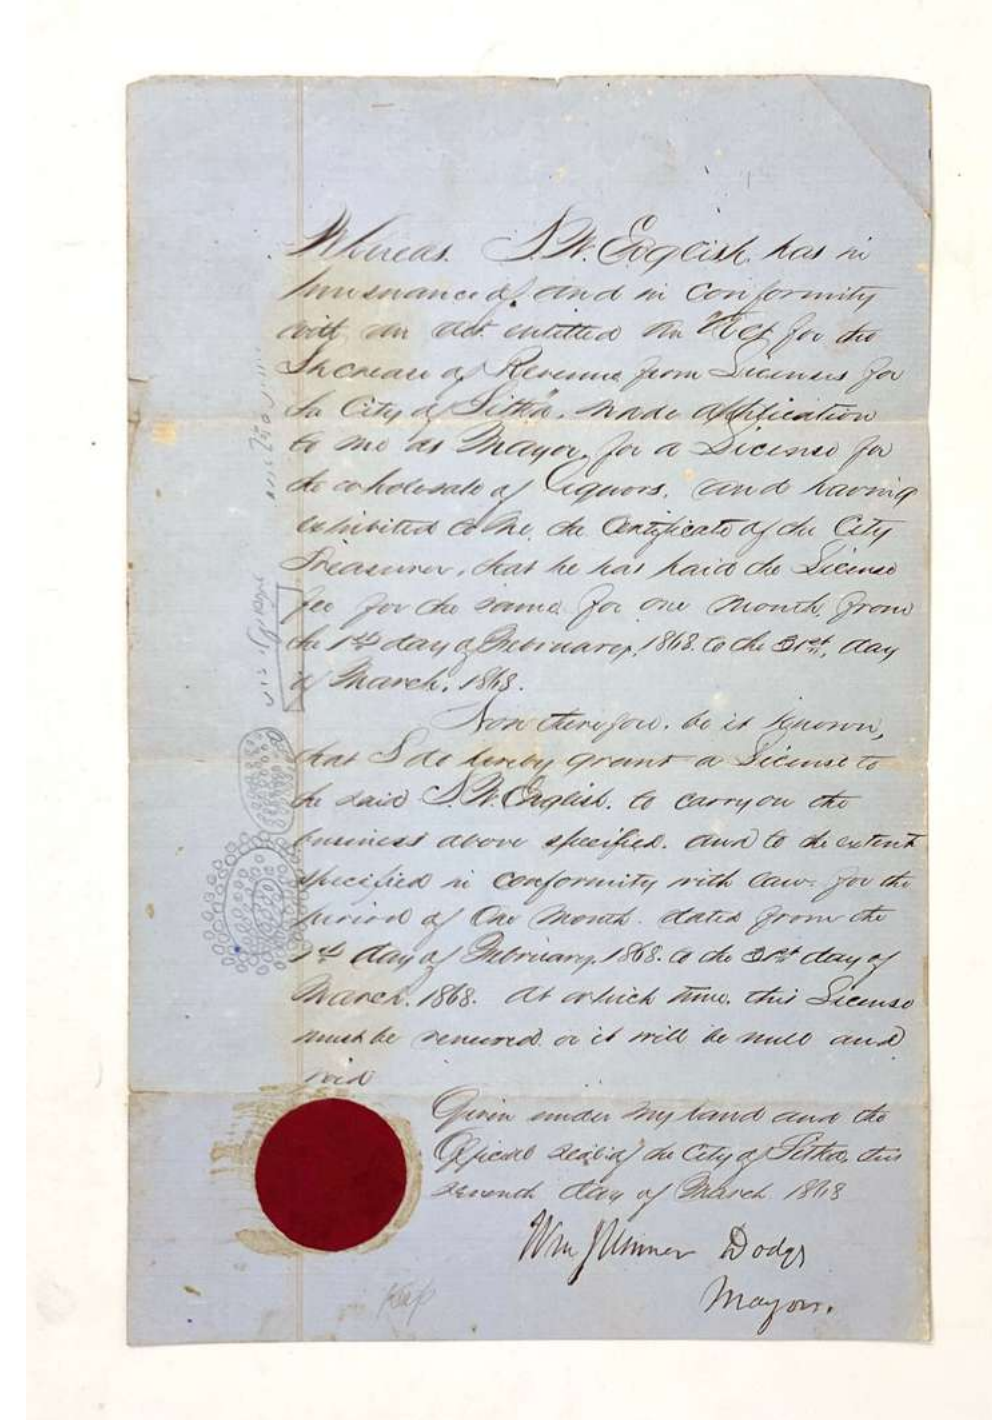 Whereas. S. W. English. has in
Pursuance of. and in conformity
with an act. entitled An Act for the
Increase of Revenue from Licenses for
the City of Sitka. made application
to me as Mayor. for a License for
the wholesale of Liquors. and having
exhibited to me. the Certificate of the City
Treasurer. that he has paid the License
fee for the same for one month. from
the 1st day of February, 1868. to the 31st. day
of March. 1868.
Now therefore. be it known,
that I do hereby grant a License to
the said S. W. English. to carry on the
business above specified. and to the extent
specified in conformity with law. for the
period of One month. dated from the
1st day of February. 1868. to the 31st day of
March. 1868. At which time. this License
must be renewed or it will be null and
void
Given under my hand and the
Official seal of the City of Sitka, this
seventh day of March 1868
Wm Sumner Dodge
Mayor.